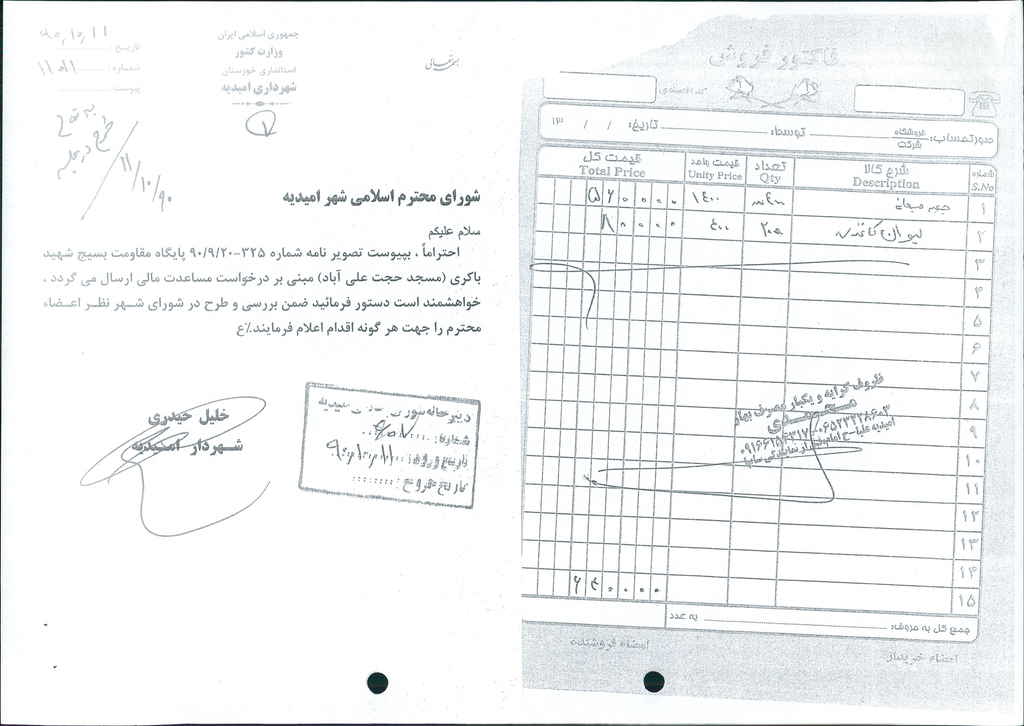 بسمه تعالی
جمهوری اسلامی ایران
وزارت کشور
استانداری خوزستان
شهرداری امیدیه
تاریخ: ۹۰,۱۰,۱۱
شماره:
پیوست
۱۱/۱۰/۹۰
شورای محترم اسلامی شهر امیدیه
سلام علیکم
احتراماً ، بپیوست تصویر نامه شماره ۳۲۵-۹۰/۹/۲۰ پایگاه مقاومت بسیج شهید
باکری (مسجد حجت علی آباد) مبنی بر درخواست مساعدت مالی ارسال می گردد ،
خواهشمند است دستور فرمائید ضمن بررسی و طرح در شورای شهر نظر اعضاء
محترم را جهت هر گونه اقدام اعلام فرمایند.٪ع
خلیل حیدری
شهردار امیدیه
دبیرخانه شورای امیدیه
شماره:
تاریخ ورود: ۹۰,۱۰,۱۱
تاریخ خروج:
فاکتور فروش
کد اقتصادی
صورتحساب: فروشگاه شرکت توسط: تاریخ: / / ۱۳
شماره S.No شرح کالا Description تعداد Qty قیمت واحد Unity Price قیمت کل Total Price
۱ ۱۴۰۰ ۵۶۰۰۰۰
۲ لیوان کاغذی ۲۰۰ ۴۰۰ ۸۰۰۰۰
۳
۴
۵
۶
۷
۸
۹
۱۰
۱۱
۱۲
۱۳
۱۴
۱۵ ۶۴۰۰۰۰
فروش کرایه و یکبار مصرف بهار
محمدی
جمع کل به حروف: به عدد
امضاء خریدار امضاء فروشنده